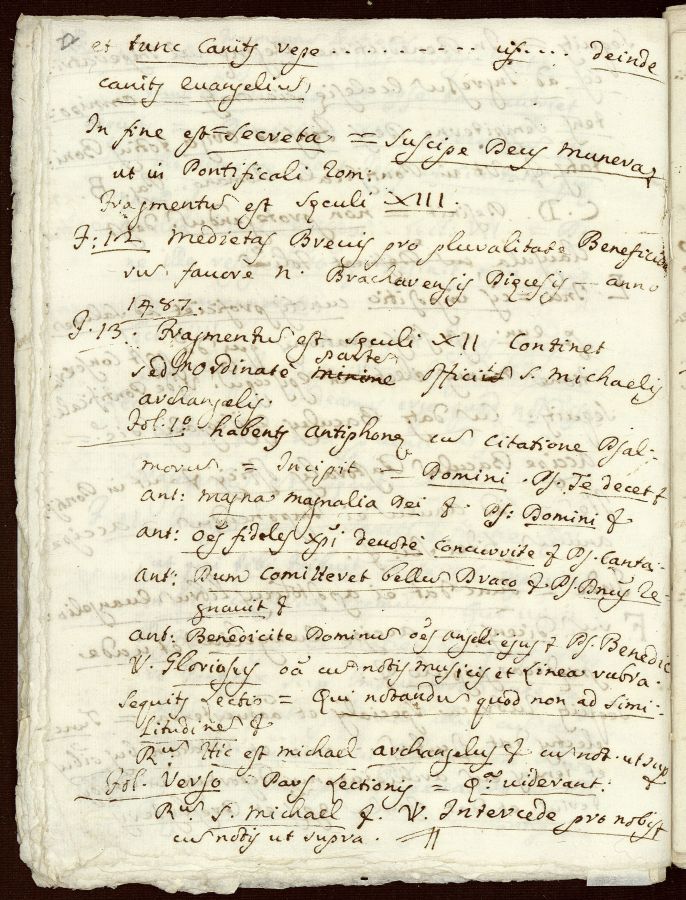 et tunc Canitʒ vepe . . . . . . . . . . . us . . . . deinde
canitʒ Evangeliũ,
In fine est = Secreta = Suscipe Deus munera &
ut in Pontificali Rom:
Fragmentũ est sęculi XIII.
F: 12 Medietas Brevis pro pluralitate Beneficio
rũ favore n. Bracharensis Dięcesis anno
1487.
F. 13. Fragmentũ est sęculi XII Continet
sed inordinate minime parte Officiũ S. Michaelis
archangelis.
Fol. 1º habentʒ antiphonę cũ citatione Psal-
morũ = Incipit = Domini. Ps. Te decet &
ant: magna magnalia Dei & Ps: Domini &
ant: oẽs fideles xp̃i devote concurrite & Ps. Canta:
ant: Dum Comitteret bellũ Draco & Ps. Dñus Re-
gnavit &
ant: Benedicite Dominũ oẽs angeli ejus & Ps. Benedic
V. Gloriosus oã cũ notis musicis et linea rubra.
Sequitʒ Lectio = Qui notandũ quod non ad Simi-
litudinẽ &
Rũ Hic est michael archangelus & cũ not. ut sup
Fol. Verso Pars Lectionis = Q. viderant.
Rũ. S. Michael & V. Intercede pro nobis &
cũ notis ut supra.